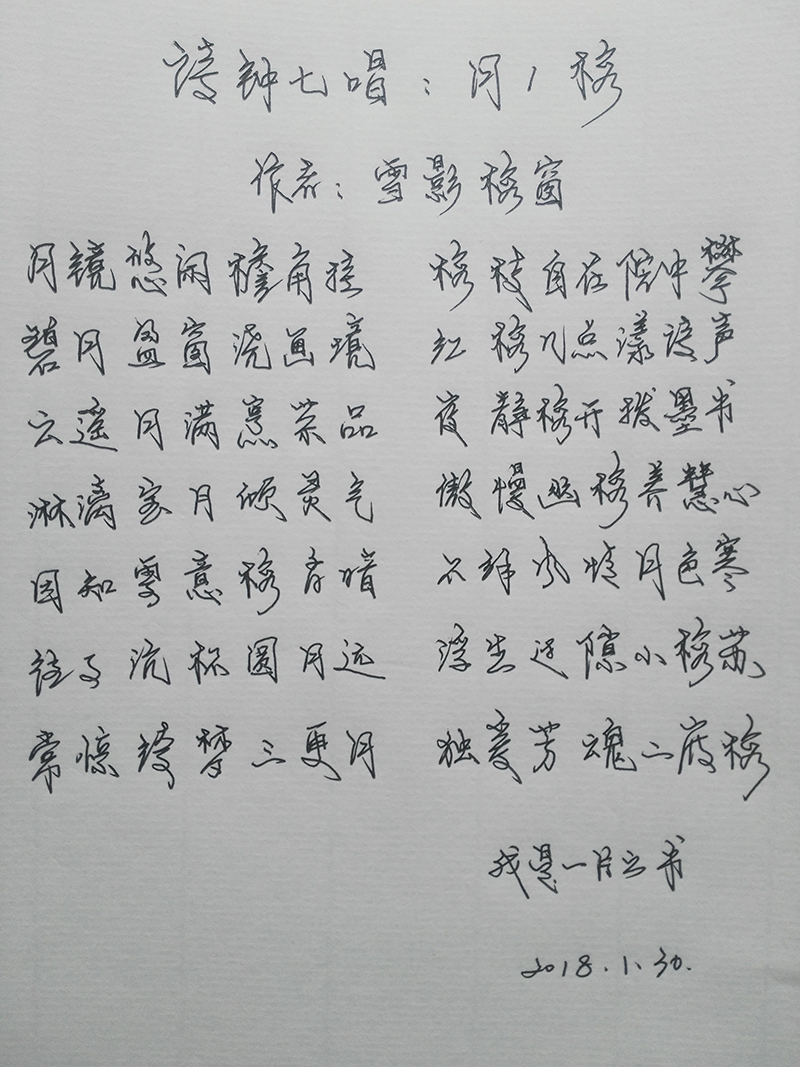 诗钟七唱：月/梅
作者：雪影梅窗
月镜悠闲檐角挂 梅枝自在院中攀
碧月盈窗浇画境 红梅几点漾诗声
云遥月满烹茶品 夜静梅开拨墨书
淋漓月倾灵气 傲慢幽梅养慧心
因知雪意梅香暗 不解风情月色寒
往事沉杯圆月远 浮生过隙小梅苏
常惊绮梦三更月 独爱芳魂二度梅
我是一片云书
2018.1.30.